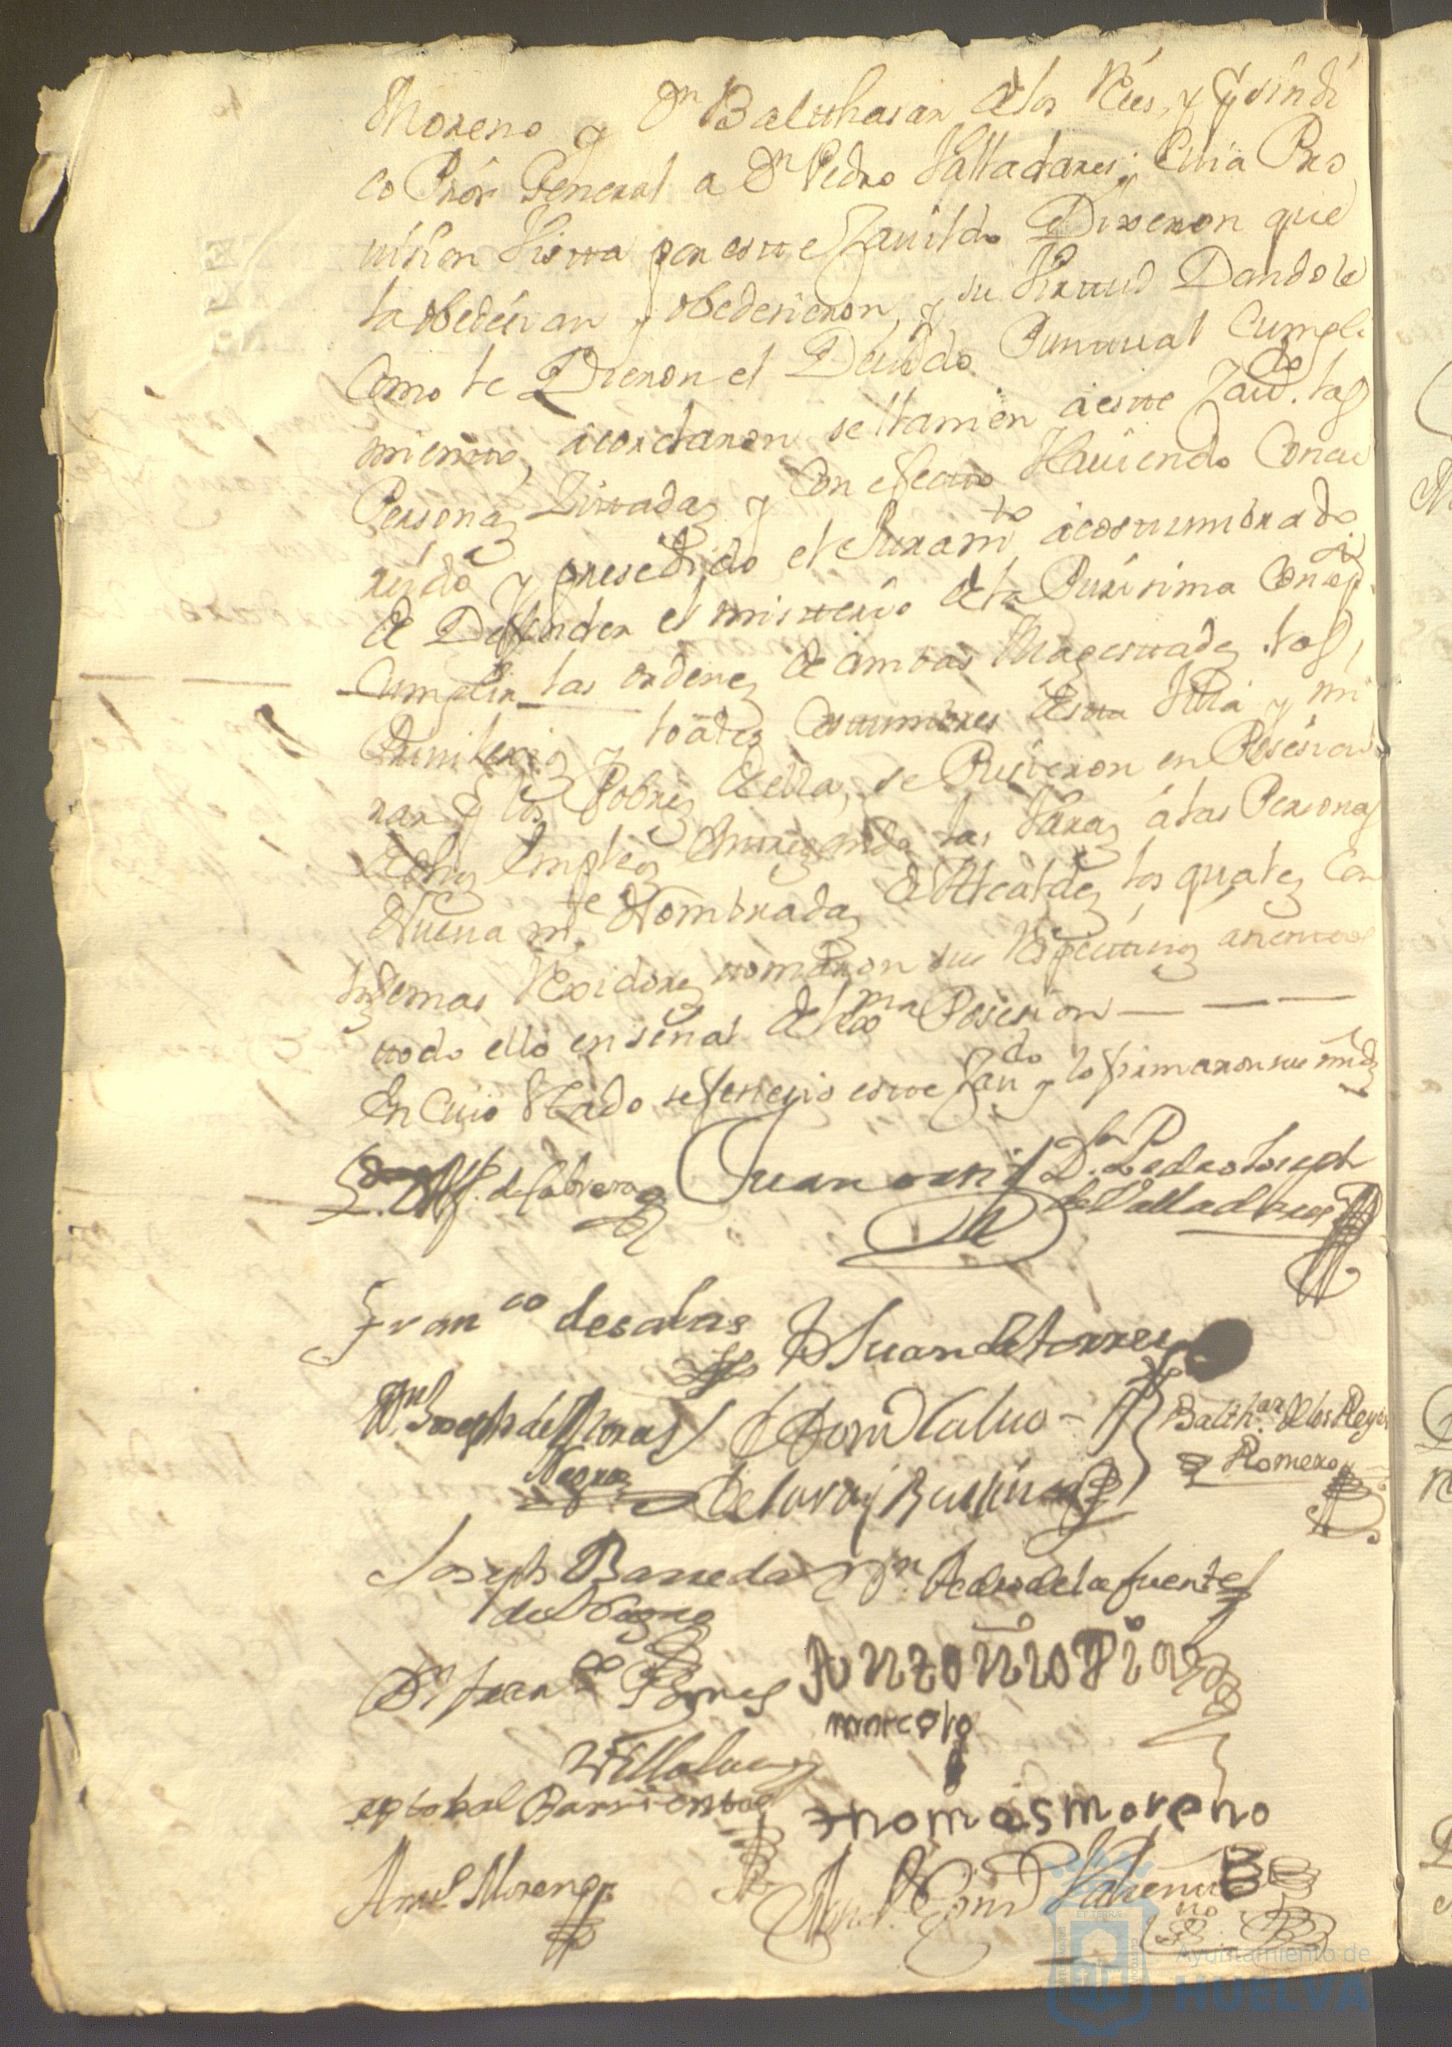 Moreno y Dn Balthasar de los Rées, y Por sindi
co Prór General a Dn Pedro Valladares; Cuia Pro
uision Vista por este Cauildo Dixeron que
la obedeçian y obedesieron, y su Virtud Dandole
Como le Dieron el Deuido Puntual Cumpli
miento, acordaron se llamen a este Cauido. las
Personas Zitadas y Con efecto Hauiendo Concu
rrido y presedido el Juramto acostumbrado
de Defender el misterio de la Purisima Consepn
Cumplir las ordenes de ambas Magestades, los
Priuilexios y loables Costumbres desta Villa y mi
rar Por los Pobres della, se Pusieron en Posesion
de dhos Empleos Entregando las Varas á las Personas
Nueua mte. Nombradas de Alcaldes los quales Con
los demas Rexidores tomaron sus Respectiuos asientos
todo ello en señal de la Posesion
En Cuio Estado se feneçio este Caudo y lo firmaron sus mrds
de Cabrera Juan Dn Pedro Joseph
de Valladares
Franco de salas Juan de torres
Dn Joseph de Moras Domo Caluo Balthar de los Reyes
Negro Romero
Joseph Baneda Dn Pedro de la fuente
Dn Franco Antonio Dia
marcolo
Villalua
xptobal Barrientos thomas moreno
Anto Moreno
Ayuntamiento de
HUELVA